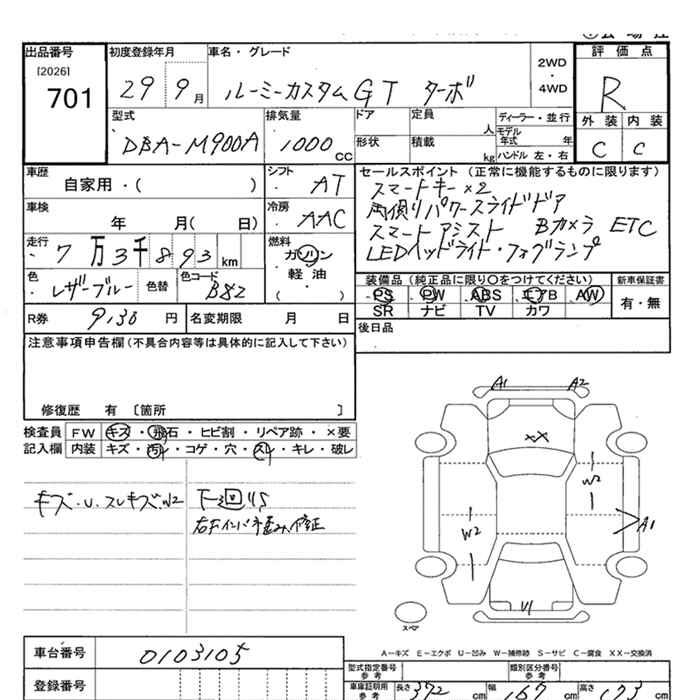 出品番号
[2026]
701
初度登録年月
29 9月
車名・グレード
ルーミーカスタムGT ターボ
2WD
・
4WD
評価点
R
外装 内装
C C
型式
DBA-M900A
排気量
1000 CC
ドア
定員
人
形状
積載
kg
ディーラー・並行
モデル年式 年
ハンドル 左・右
車歴
自家用・( )
シフト
AT
車検
年 月( 日)
冷房
AAC
走行
7万3千893 km
燃料
ガソリン
軽油
( )
色
レザーブルー
色替
色コード
B82
R券
9,130 円
名変期限 月 日
セールスポイント (正常に機能するものに限ります)
スマートキー×2
両側パワースライドドア
スマートアシスト Bカメラ ETC
LEDヘッドライト・フォグランプ
装備品 (純正品に限り○をつけてください)
新車保証書
PS PW ABS エアB AW
SR ナビ TV カワ
有・無
後日品
注意事項申告欄(不具合内容等は具体的に記入して下さい)
修復歴 有 〔箇所 〕
検査員記入欄
FW キズ・飛石・ヒビ割・リペア跡・×要
内装 キズ・汚れ・コゲ・穴・スレ・キレ・破レ
キズ・U・スレキズW2
下回りS
右Fインパネ歪み、修正
A1 A2
XX
W2
W2
A1
U1
スペア
A-キズ E-エクボ U-凹み W-補修跡 S-サビ C-腐食 XX-交換済
車台番号
0103105
登録番号
型式指定番号
参考
類別区分番号
参考
車庫証明用
参考
長さ 372 cm
幅 167 cm
高さ 173 cm